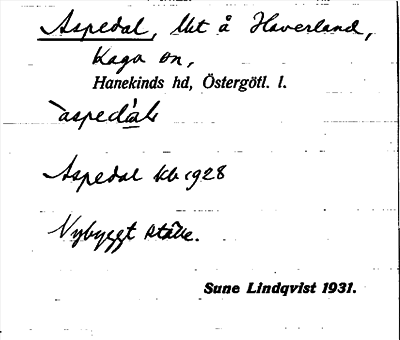 Aspedal, Lht å Haverland,
Kaga sn,
Hanekinds hd, Östergötl. l.
`aspedál
Aspedal kb 1928
Nybyggt ställe.
Sune Lindqvist 1931.